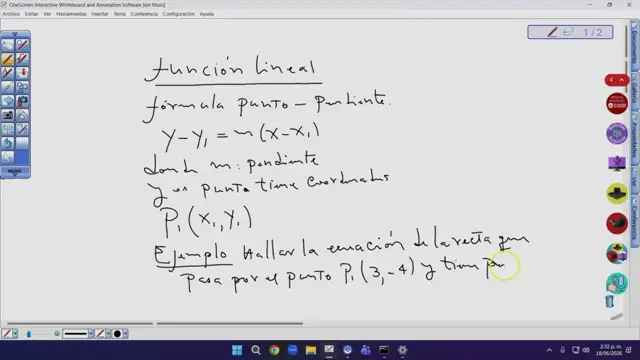 OneScreen Interactive Whiteboard and Annotation Software [sin título]
Archivo Editar Ver Herramientas Insertar Plantillas Tema Conferencia Configuración Ayuda
1 / 2
función lineal
fórmula punto - pendiente.
y - y₁ = m (x - x₁)
donde m: pendiente
y un punto tiene coordenadas
P₁ (x₁, y₁)
Ejemplo Hallar la ecuación de la recta que
pasa por el punto P₁ (3, -4) y tiene pe
MENÚ
Documento
Propiedades
Conferencia
2:32 p. m.
18/06/2026